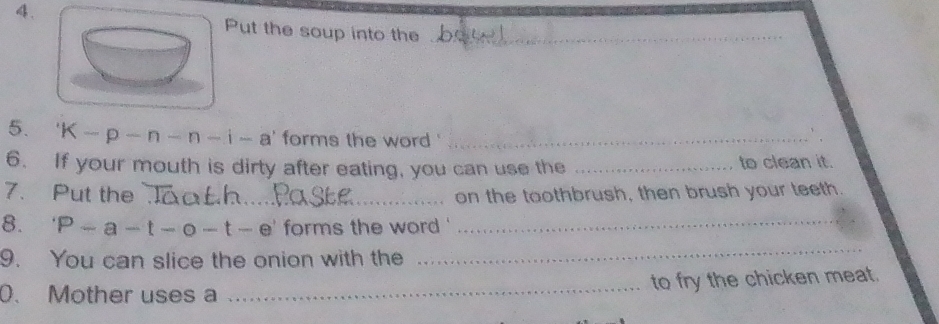 4. Put the soup into the bowl
5. 'K – p – n – n – i – a' forms the word ' ............'
6. If your mouth is dirty after eating, you can use the ............ to clean it.
7. Put the Taath Paste ............ on the toothbrush, then brush your teeth.
8. 'P – a – t – o – t – e' forms the word ' ............
9. You can slice the onion with the ............
0. Mother uses a ............ to fry the chicken meat.